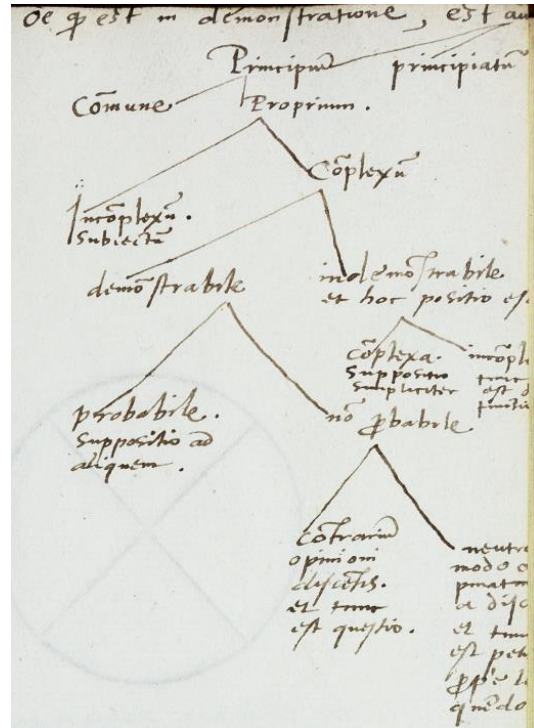 Oē qd est in demonstratione, est au
Principium principiatū
Cōmune Proprium.
Cōplexū
Incōplexū.
Subiectū
demōstrabile
indemōstrabile
et hoc positio es
cōplexa.
Suppositio
Simpliciter
incōpl
tunc
est d
probabile.
Suppositio ad
aliquem.
nō ꝓbabile
cōtrariū
opinioni
discētis.
et tunc
est questio.
neutro
modo o
pinatū
a disc
et tun
est pet